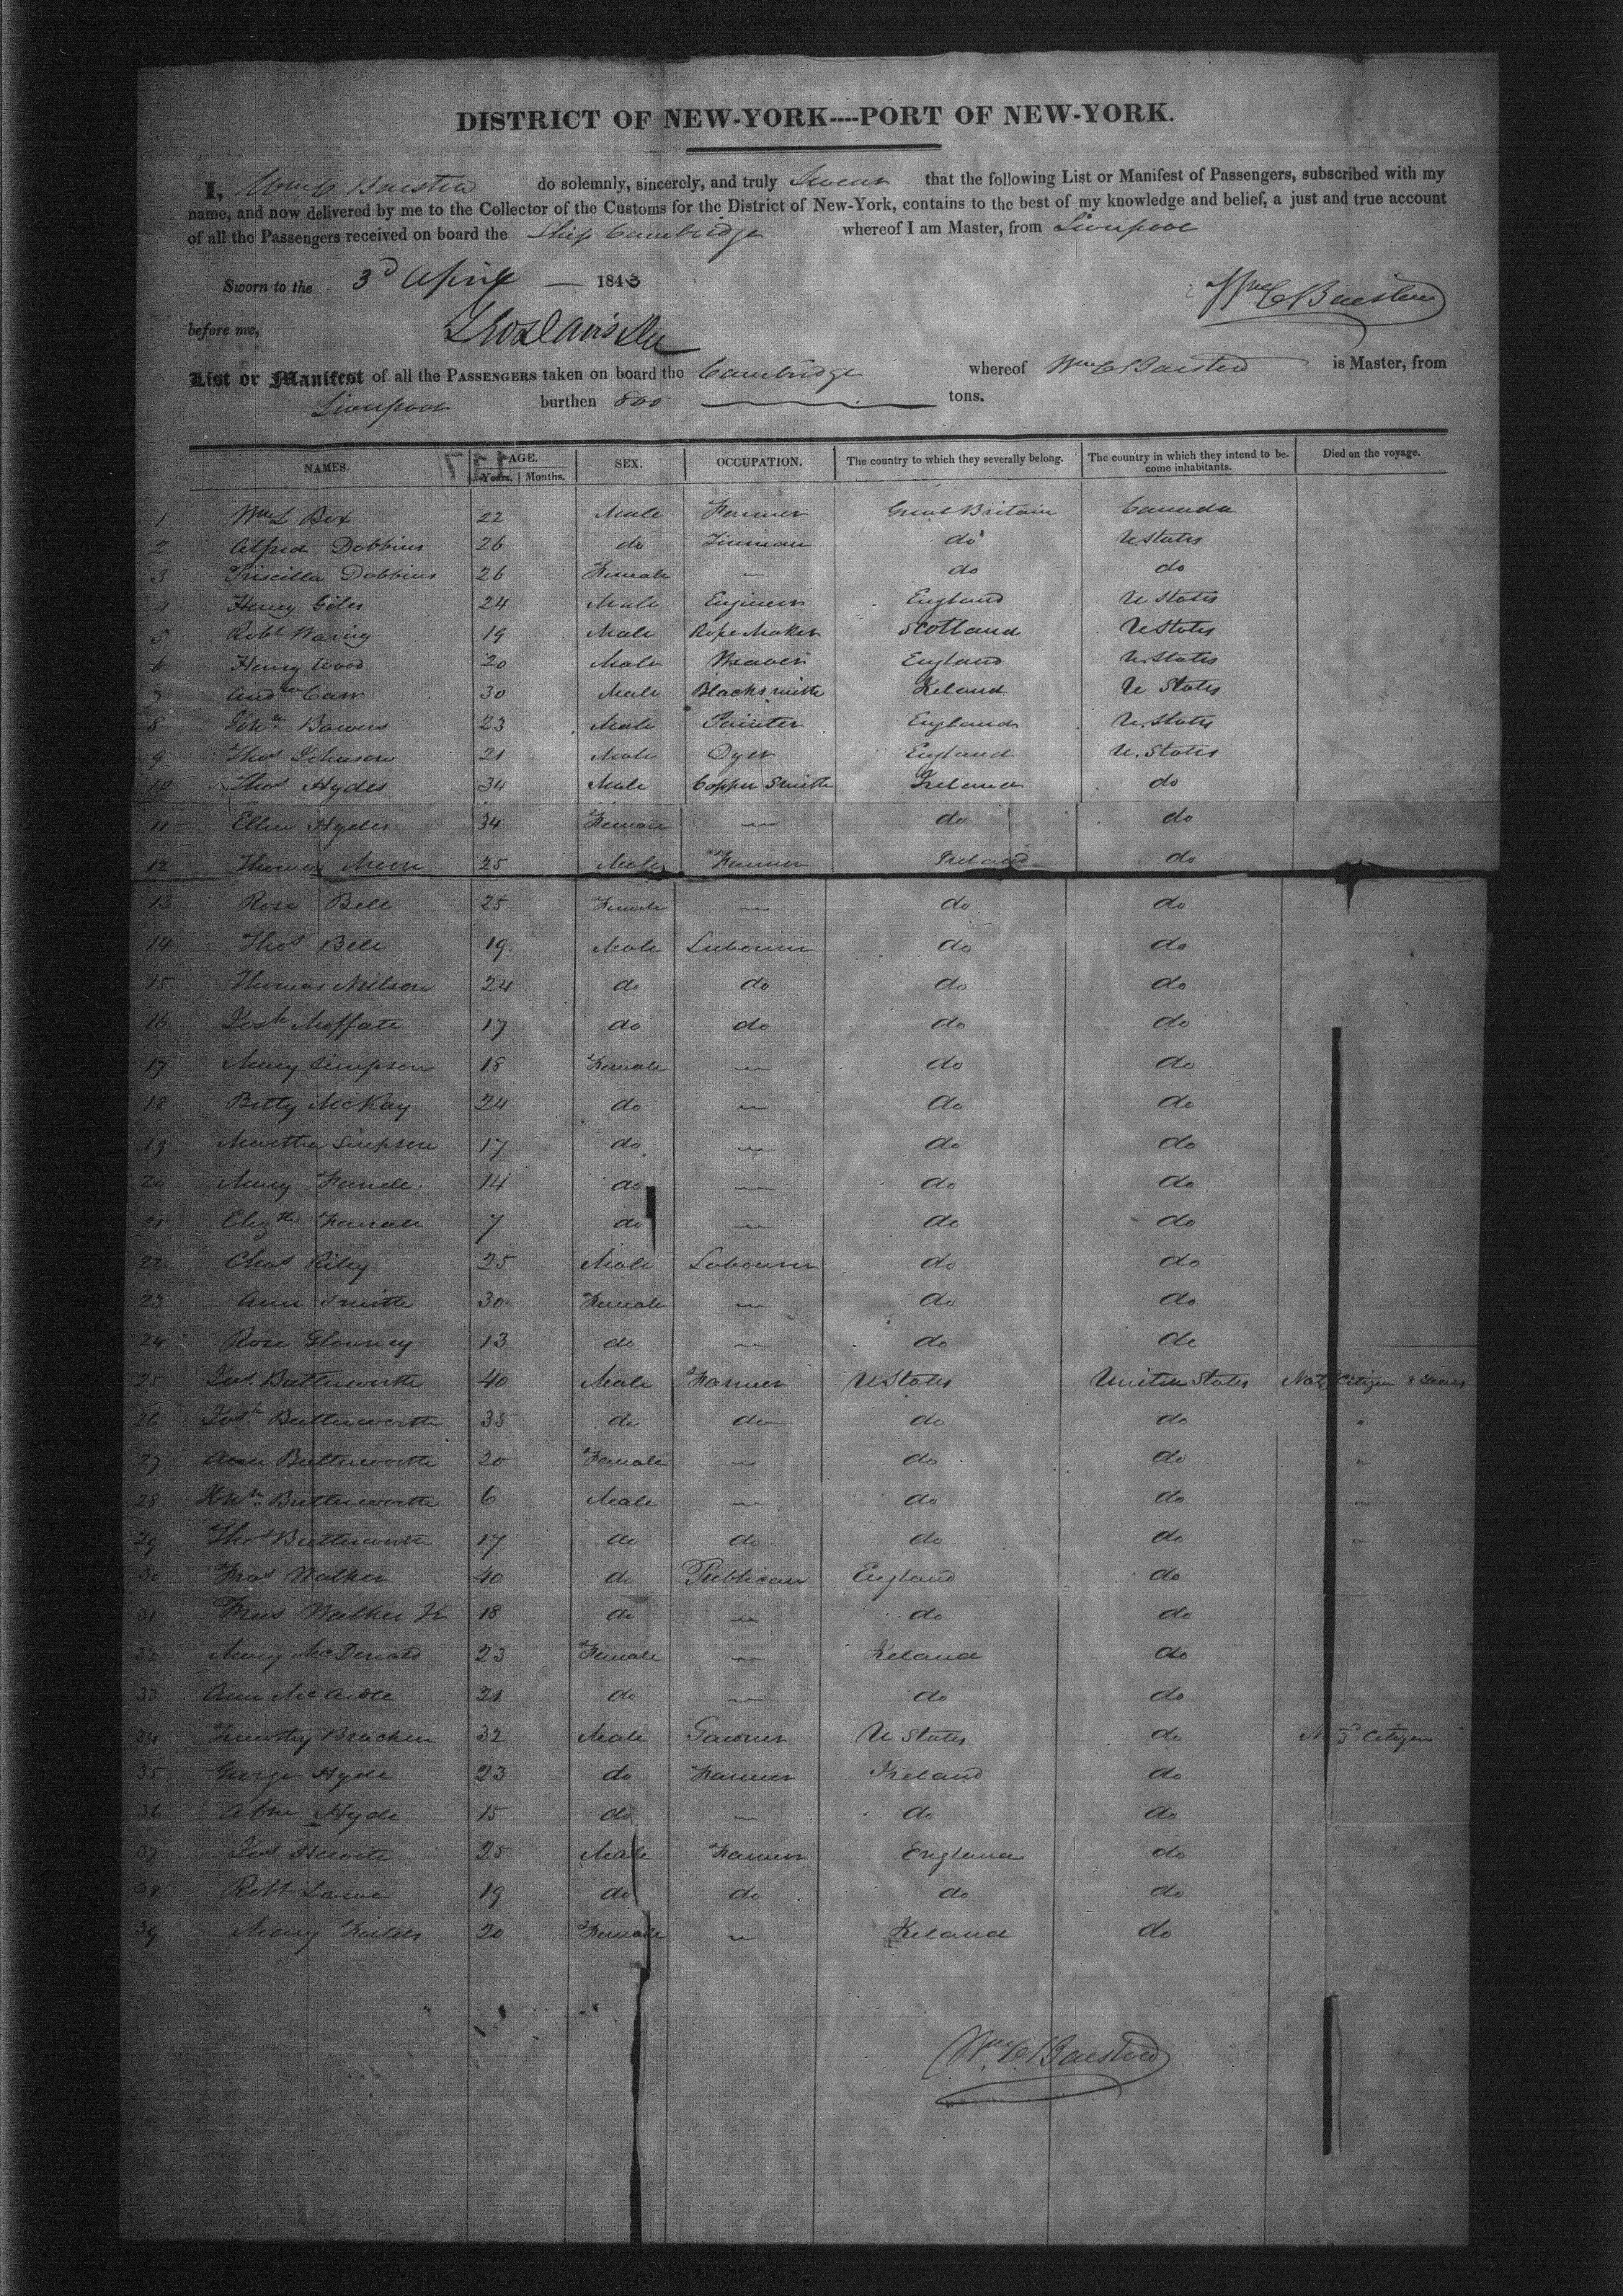 DISTRICT OF NEW-YORK----PORT OF NEW-YORK.
I, Wm C Barstow do solemnly, sincerely, and truly Swear that the following List or Manifest of Passengers, subscribed with my
name, and now delivered by me to the Collector of the Customs for the District of New-York, contains to the best of my knowledge and belief, a just and true account
of all the Passengers received on board the Ship Cambridge whereof I am Master, from Liverpool
Sworn to the 3d April 1843 Wm C Barstow
before me,
List or Manifest of all the PASSENGERS taken on board the Cambridge whereof Wm C Barstow is Master, from
Liverpool burthen 800 tons.
NAMES. AGE. SEX. OCCUPATION. The country to which they severally belong. The country in which they intend to be- Died on the voyage.
Years. Months. come inhabitants.
1 Wm L Box 22 Male Farmer Great Britain Canada
2 Alfred Dobbins 26 do do U States
3 Priscilla Dobbins 26 Female " do do
4 Henry Giles 24 Male Engineer England U States
5 Robt Waring 19 Male Rope Maker Scotland U States
6 Henry Wood 20 Male Weaver England U. States
7 Andrew Carr 30 Male Blacksmith Ireland U States
8 Jno Bowers 23 Male Painter England U. States
9 Thos Johnson 21 Male Dyer England U. States
10 Thos Hydes 34 Male Copper Smith Ireland do
11 Ellen Hydes 34 Female " do do
12 Thomas Moore 25 Male Farmer Ireland do
13 Rose Bell 25 Female " do do
14 Thos Bell 19 Male Labourer do do
15 Thomas Neilson 24 do do do do
16 Josh Moffatt 17 do do do do
17 Mary Simpson 18 Female " do do
18 Betty McKay 24 do " do do
19 Martha Simpson 17 do " do do
20 Mary 14 do " do do
21 Elizth 7 do " do do
22 Chas Riley 25 Male Labourer do do
23 Ann Smith 30 Female " do do
24 Rose 13 do " do do
25 Jas. Butterworth 40 Male Farmer U States United States Natd Citizen 8 Years
26 Josh Butterworth 35 do do do do "
27 Ann Butterworth 20 Female " do do "
28 Jno Butterworth 6 Male " do do "
29 Thos Butterworth 17 do do do do "
30 Fras Walker 40 do Publican England do
31 Fras Walker Jr 18 do " do do
32 Mary McDonald 23 Female " Ireland do
33 Ann McArdle 21 do " do do
34 Timothy Bracken 32 Male U States do Citizen
35 George Hyde 23 do Farmer Ireland do
36 Hyde 15 do " do do
37 Jas 25 Male Farmer England do
38 Robt Lowe 19 do do do do
39 Mary 20 Female " Ireland do
Wm C Barstow